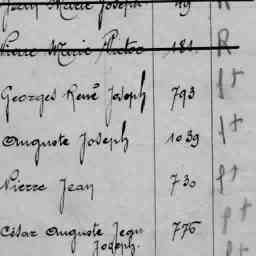 Jean Marie Joseph 49 R
Pierre Marie Victor 181 R
Georges René Joseph 793 f+
Auguste Joseph 1039 f+
Pierre Jean 730 f+
César Auguste Jean 776 f+
Joseph. f+